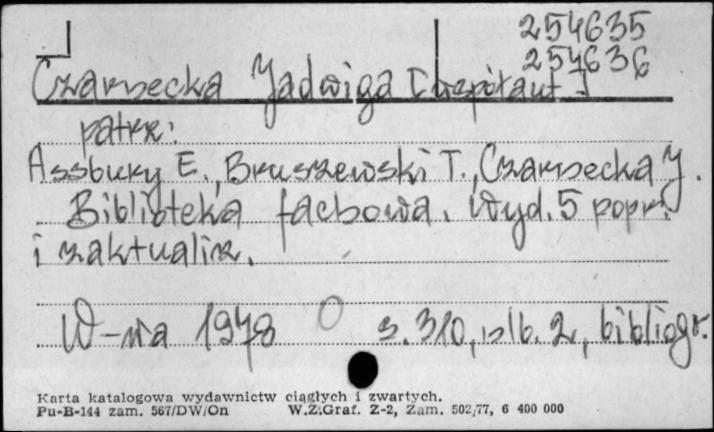 254635
254636
Czarnecka Jadwiga [współaut.]
patrz:
Assbury E., Bruszewski T., Czarnecka J.
Biblioteka fachowa. Wyd. 5 popr.
i zaktualiz.
W-wa 1978 s. 310, nlb. 2, bibliogr.
Karta katalogowa wydawnictw ciągłych i zwartych.
Pu-B-144 zam. 567/DW/On W.Z.Graf. Z-2, Zam. 502/77, 6 400 000